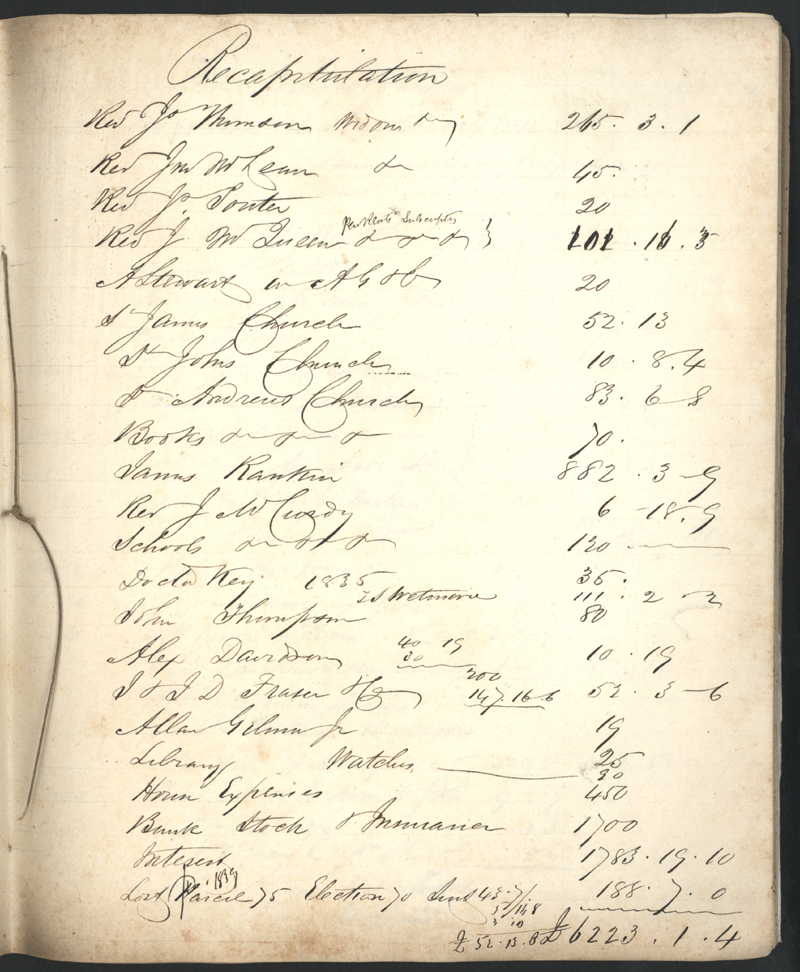 Recapitulation
Rev Js Thomson Widow do 265. 3. 1
Rev Jno McLean do 45.
Rev Js Souter 20
Pew Rents Subscription
Rev J McLean do do do } 101. 16. 3
A Stewart on A G & Co 20
St James Church 52. 13
St Johns Church 10. 8. 4
St Andrews Church 83. 6 8
Books do do do 70.
James Rankin 882. 3 9
Rev J McCurdy 6 18. 9
Schools do do do 120
Doctor Key 1835 35.
T S Wetmore 111. 2 2
John Thompson 80
40 19
Alex Davidson 30 10. 19
200
J & J D Fraser & Co 147. 16 6 52. 3 6
Allan Gilmour Jr 19
Library Watches 25
30
House Expenses 450
Bank Stock & Insurance 1700
Interest 1783. 19. 10
1839
Lost Parcel 75 Election 70 188. 7. 0
3 10
£ 52. 13. 8 £6223. 1. 4